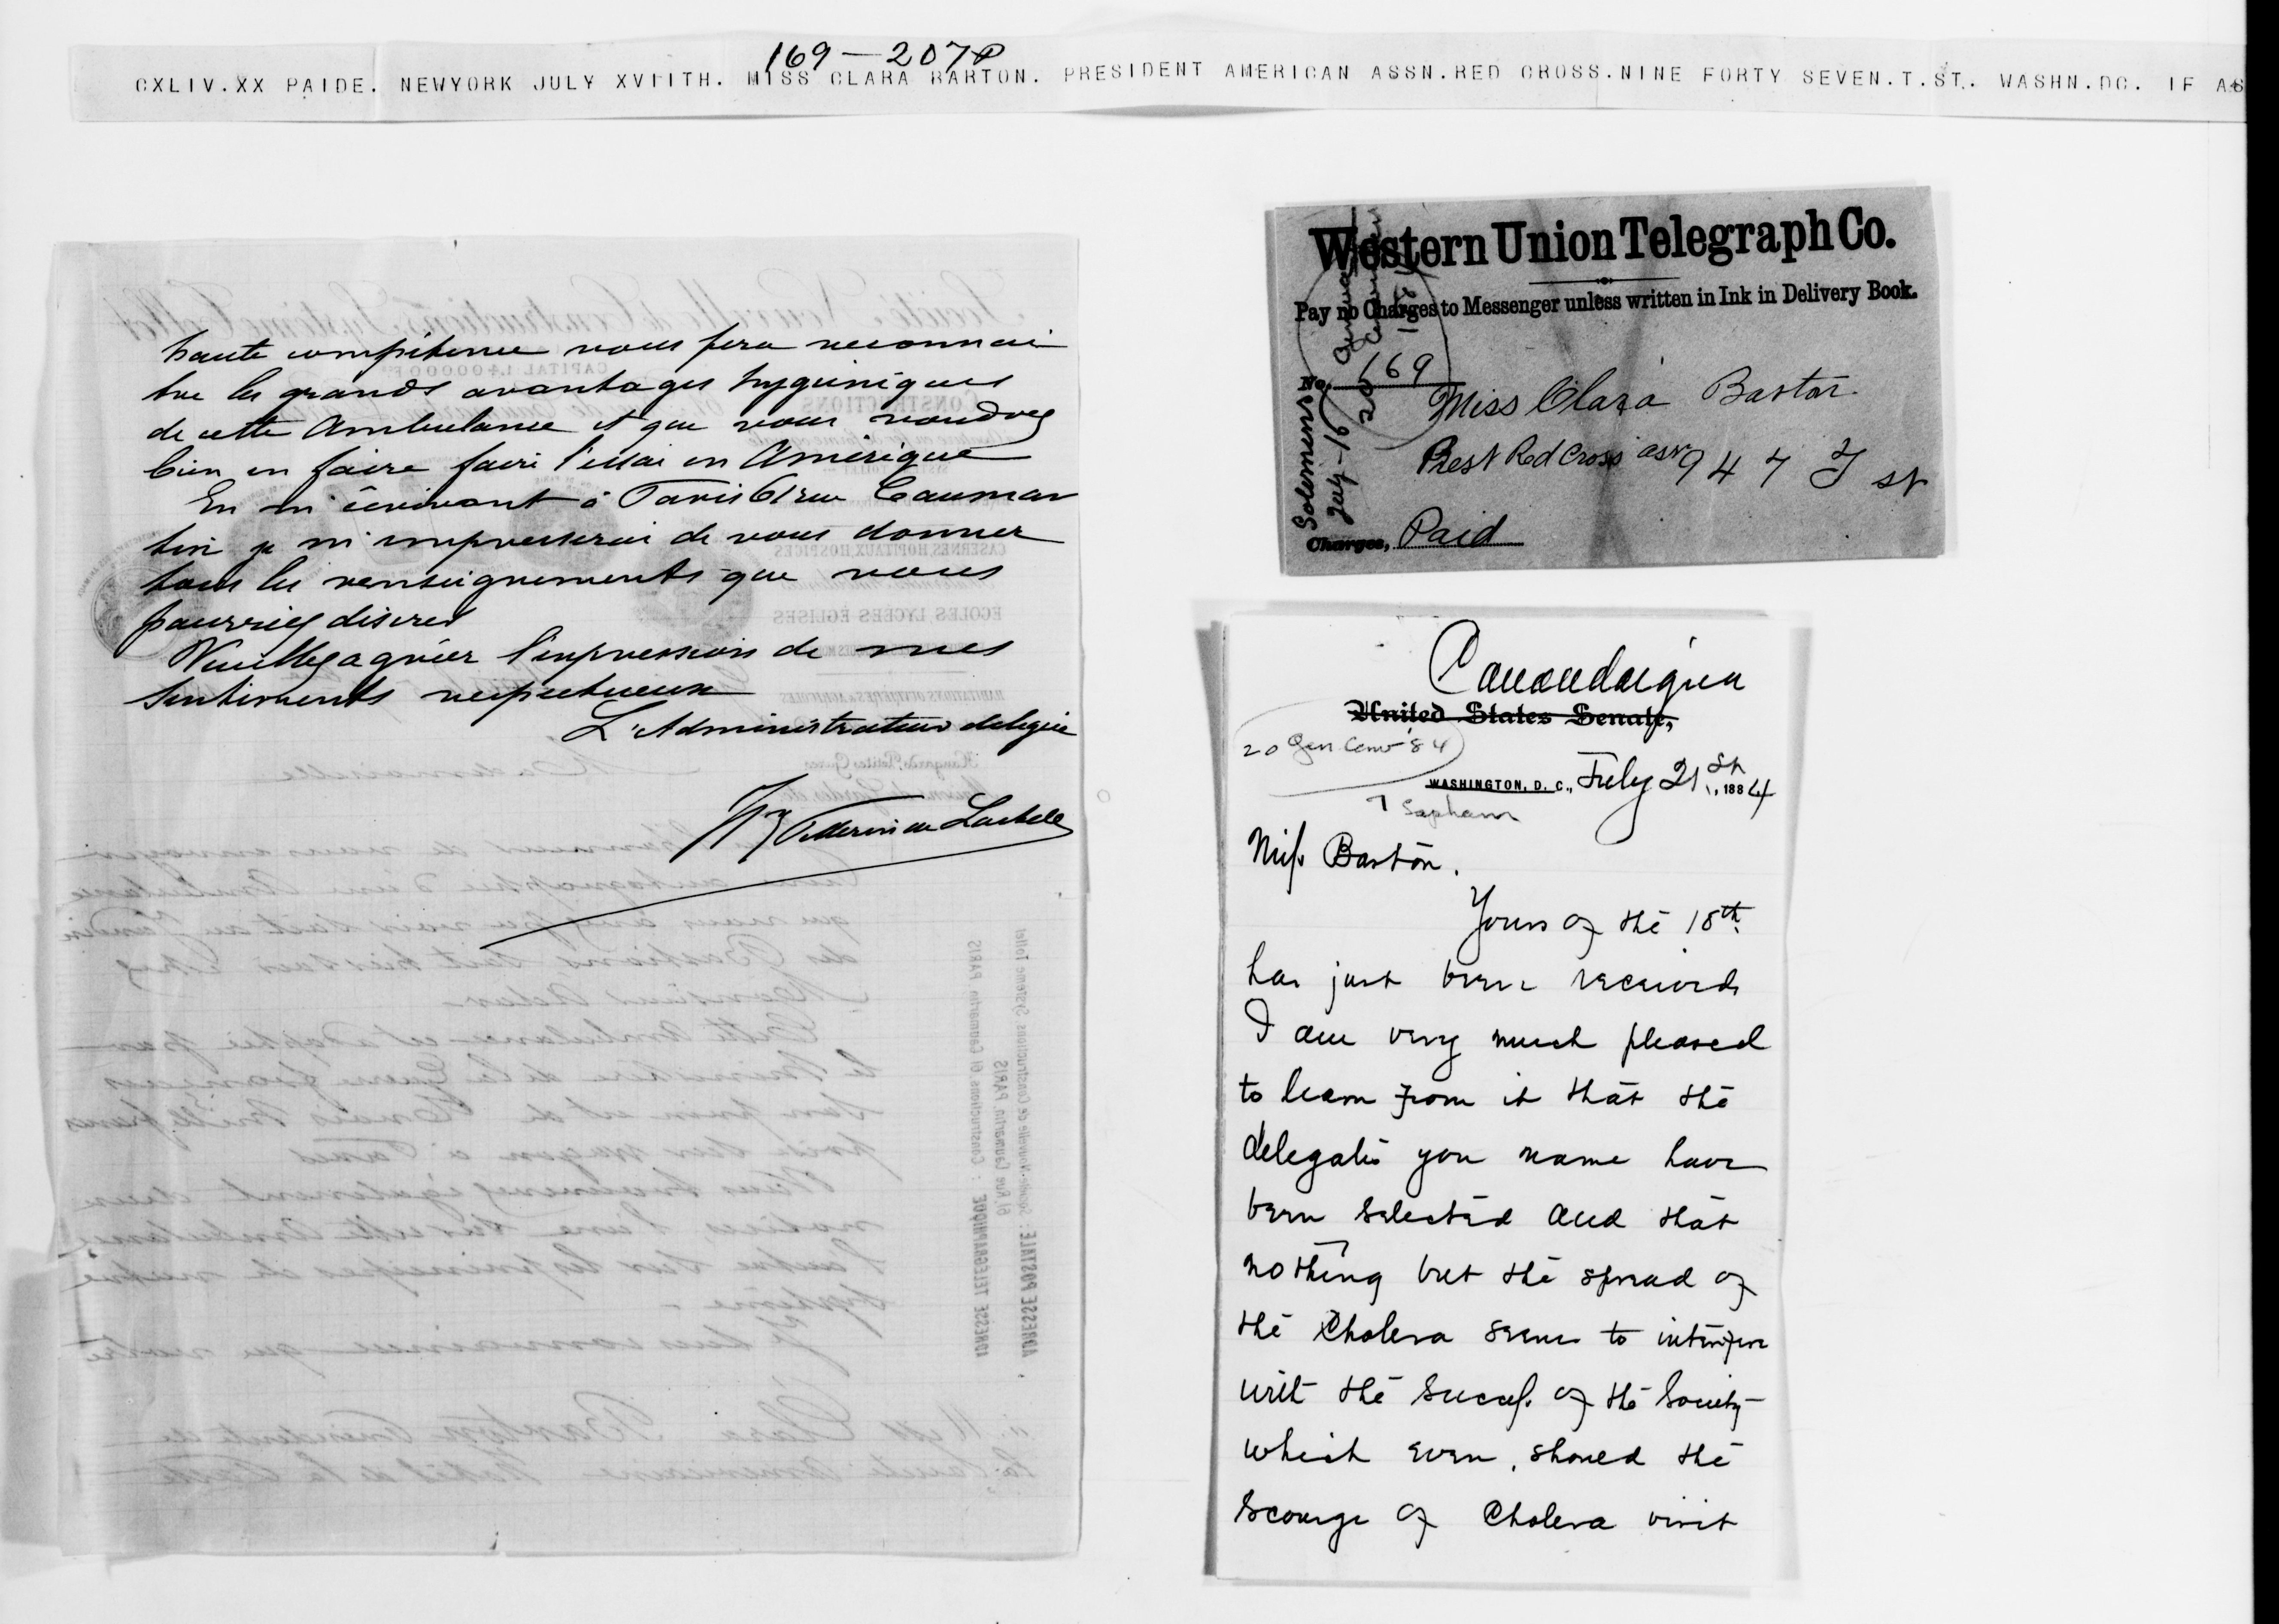 169-207P
CXLIV.XX PAIDE. NEWYORK JULY XVIITH. MISS CLARA BARTON. PRESIDENT AMERICAN ASSN.RED CROSS.NINE FORTY SEVEN.T.ST. WASHN.DC. IF AS
haute compétence vous fera reconnai
tre les grands avantages hygieniques
de cette Ambulance et que vous voudrez
bien en faire faire l'essai en Amérique
En m'écrivant à Paris 61 rue Caumar
tin je m'empresserai de vous donner
tous les renseignements que vous
pourriez désirer
Veuillez agréer l'expression de mes
sentiments respectueux
L'Administrateur delegué
Western Union Telegraph Co.
Pay no Charges to Messenger unless written in Ink in Delivery Book.
No. 169
Miss Clara Barton
Prest Red Cross assn 947 T st
Charges, Paid
Solomons
July-16
Canandaigua
United States Senate,
20 Gen Conv '84
WASHINGTON, D. C., July 21st, 1884
Lapham
Miss Barton.
Yours of the 18th.
has just been received
I am very much pleased
to learn from it that the
delegates you name have
been selected and that
nothing but the spread of
the Cholera seems to interfere
with the success of the Society
which even, should the
scourge of Cholera visit